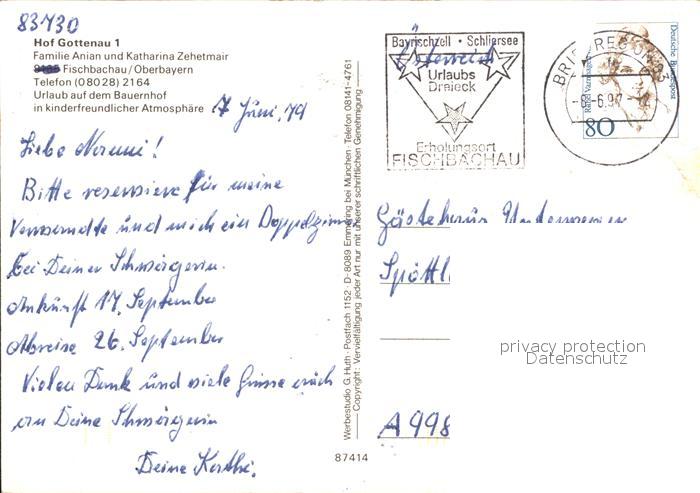 83730
Hof Gottenau 1
Familie Anian und Katharina Zehetmair
Fischbachau/Oberbayern
Telefon (0 80 28) 21 64
Urlaub auf dem Bauernhof
in kinderfreundlicher Atmosphäre
7 Juni,
Liebe
Bitte reserviere für meine
Verwandte und mich ein Doppelzimmer
bei Deiner Schwägerin.
Ankünft 17. September
Abreise 26. September
Vielen Dank und viele Grüsse auch
an Deine Schwägerin
Deine Kathi.
Werbestudio G. Huth · Postfach 1152 · D-8089 Emmering bei München · Telefon 08141-4761
Copyright: Vervielfältigung jeder Art nur mit unserer schriftlichen Genehmigung
87414
Österreich
Bayrischzell • Schliersee
Urlaubs
Dreieck
Erholungsort
FISCHBACHAU
BRIEFREGION
Deutsche Bundespost
80
Gästehaus
A 998
privacy protection
Datenschutz